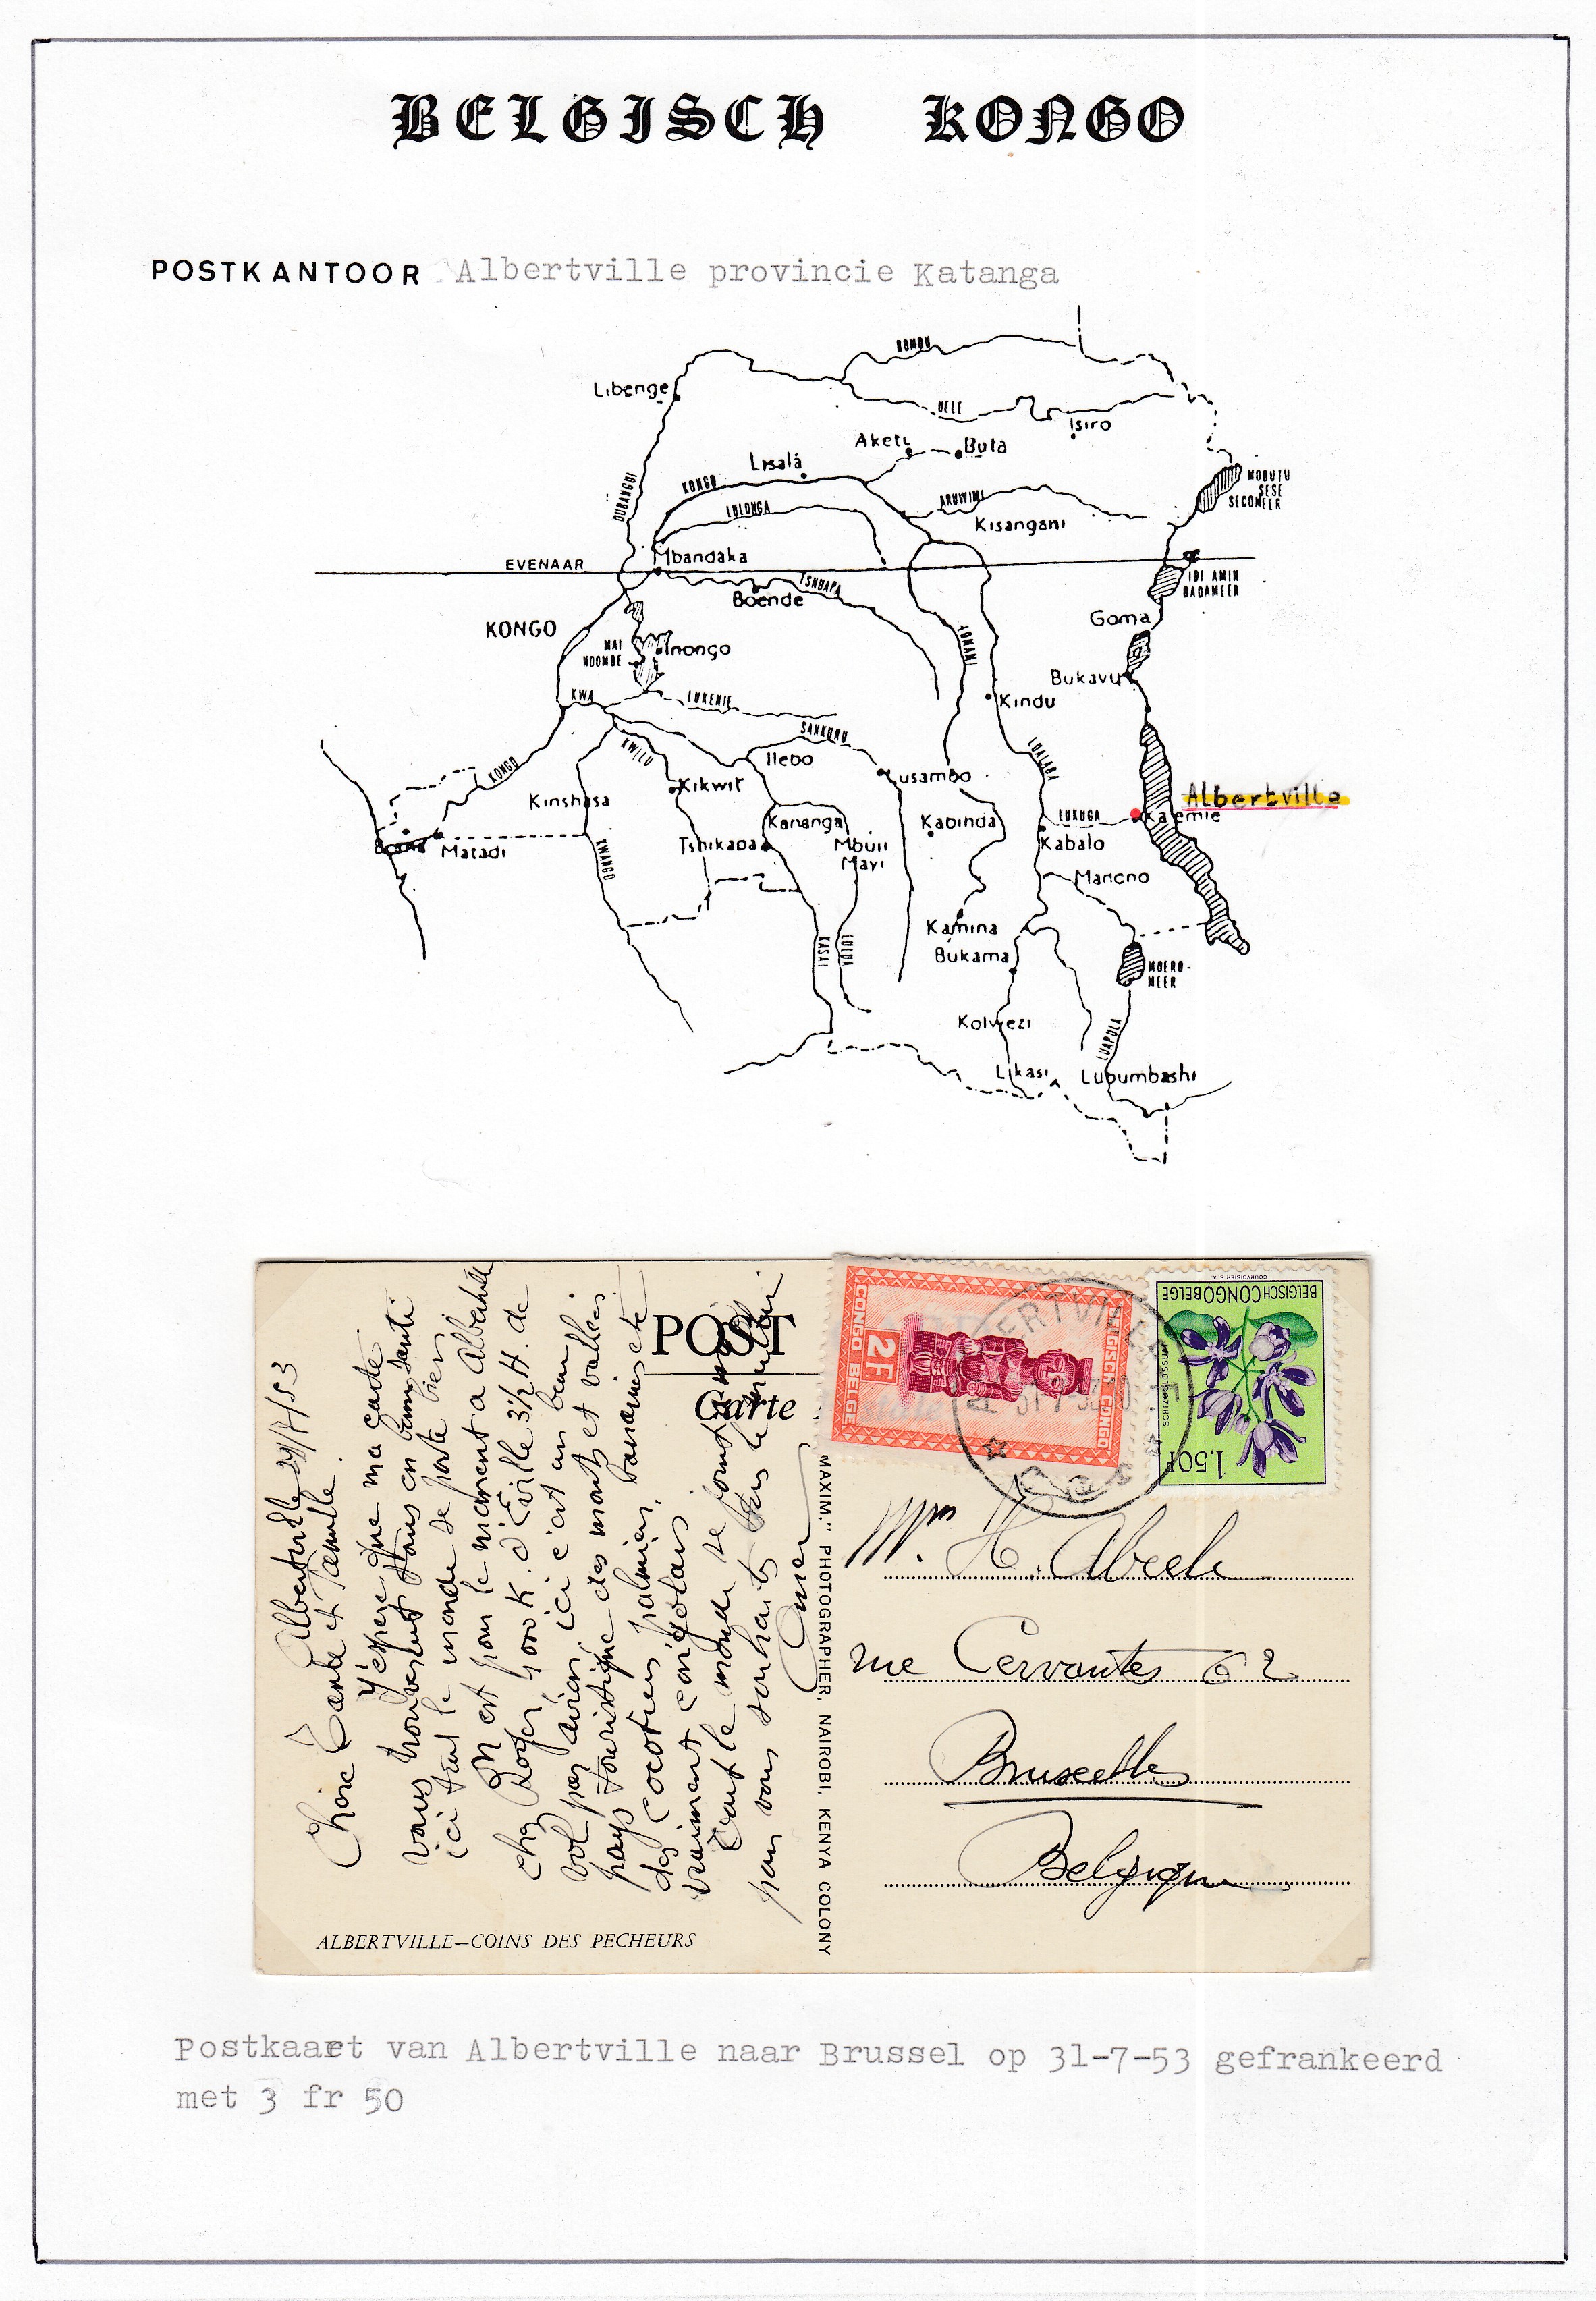 BELGISCH KONGO
POSTKANTOOR Albertville provincie Katanga
BOMOU
Libenge
UELE
Isiro
Aketi
Buta
Lisala
MOBUTU
SESE
SECOMEER
OUBANGUI
KONGO
LULONGA
ARUWIMI
Kisangani
EVENAAR
Mbandaka
TSHUAPA
IDI AMIN
DADAMEER
Boende
Goma
KONGO
MAI
NDOMBE
Inongo
LOMAMI
Bukavu
KWA
LUKENIE
Kindu
SANKURU
KWILU
Ilebo
LUALABA
KONGO
Kikwit
Lusambo
Kinshasa
Albertville
Kalemie
LUKUGA
Kananga
Kabinda
Boma
Matadi
Tshikapa
Mbuji
Mayi
Kabalo
KWANGO
Manono
Kamina
KASAI
LULUA
Bukama
MOERO-
MEER
Kolwezi
LUAPULA
Likasi
Lubumbashi
POST
Carte
CONGO BELGE
2F
BELGISCH CONGO
ALBERTVILLE
31-7-53
BELGISCH CONGO BELGE
COURVOISIER S.A.
SCHIZOGLOSSUM
1.50F
Albertville 29/7/53
Chère Tante et Famille.
J'espère que ma carte
vous trouverent tous en bonne santé
ici tout le monde se porte bien
On est pour le moment a Albertville
chez Roger, 900 K. d'Eville 3½ H. de
vol par avion, ici c'est un beau
pays touristique des monts et vallées
des cocotiers, palmiers, bananiers etc
vraiment congolais.
Tout le monde se joint
pour vous souhaits
"MAXIM," PHOTOGRAPHER, NAIROBI, KENYA COLONY
H. Abeele
rue Cervantes 62
Bruxelles
Belgique
ALBERTVILLE—COINS DES PECHEURS
Postkaart van Albertville naar Brussel op 31-7-53 gefrankeerd
met 3 fr 50